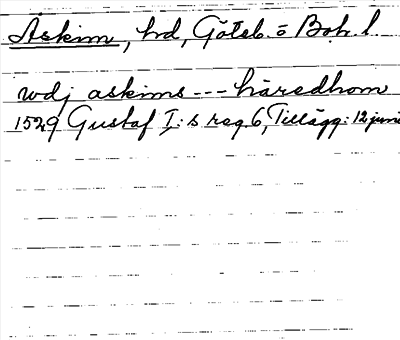 Askim, hd, Göteb. o Boh. l.
wdj askims --- häredhom
1529 Gustaf I:s reg. 6, Tillägg: 12 juni